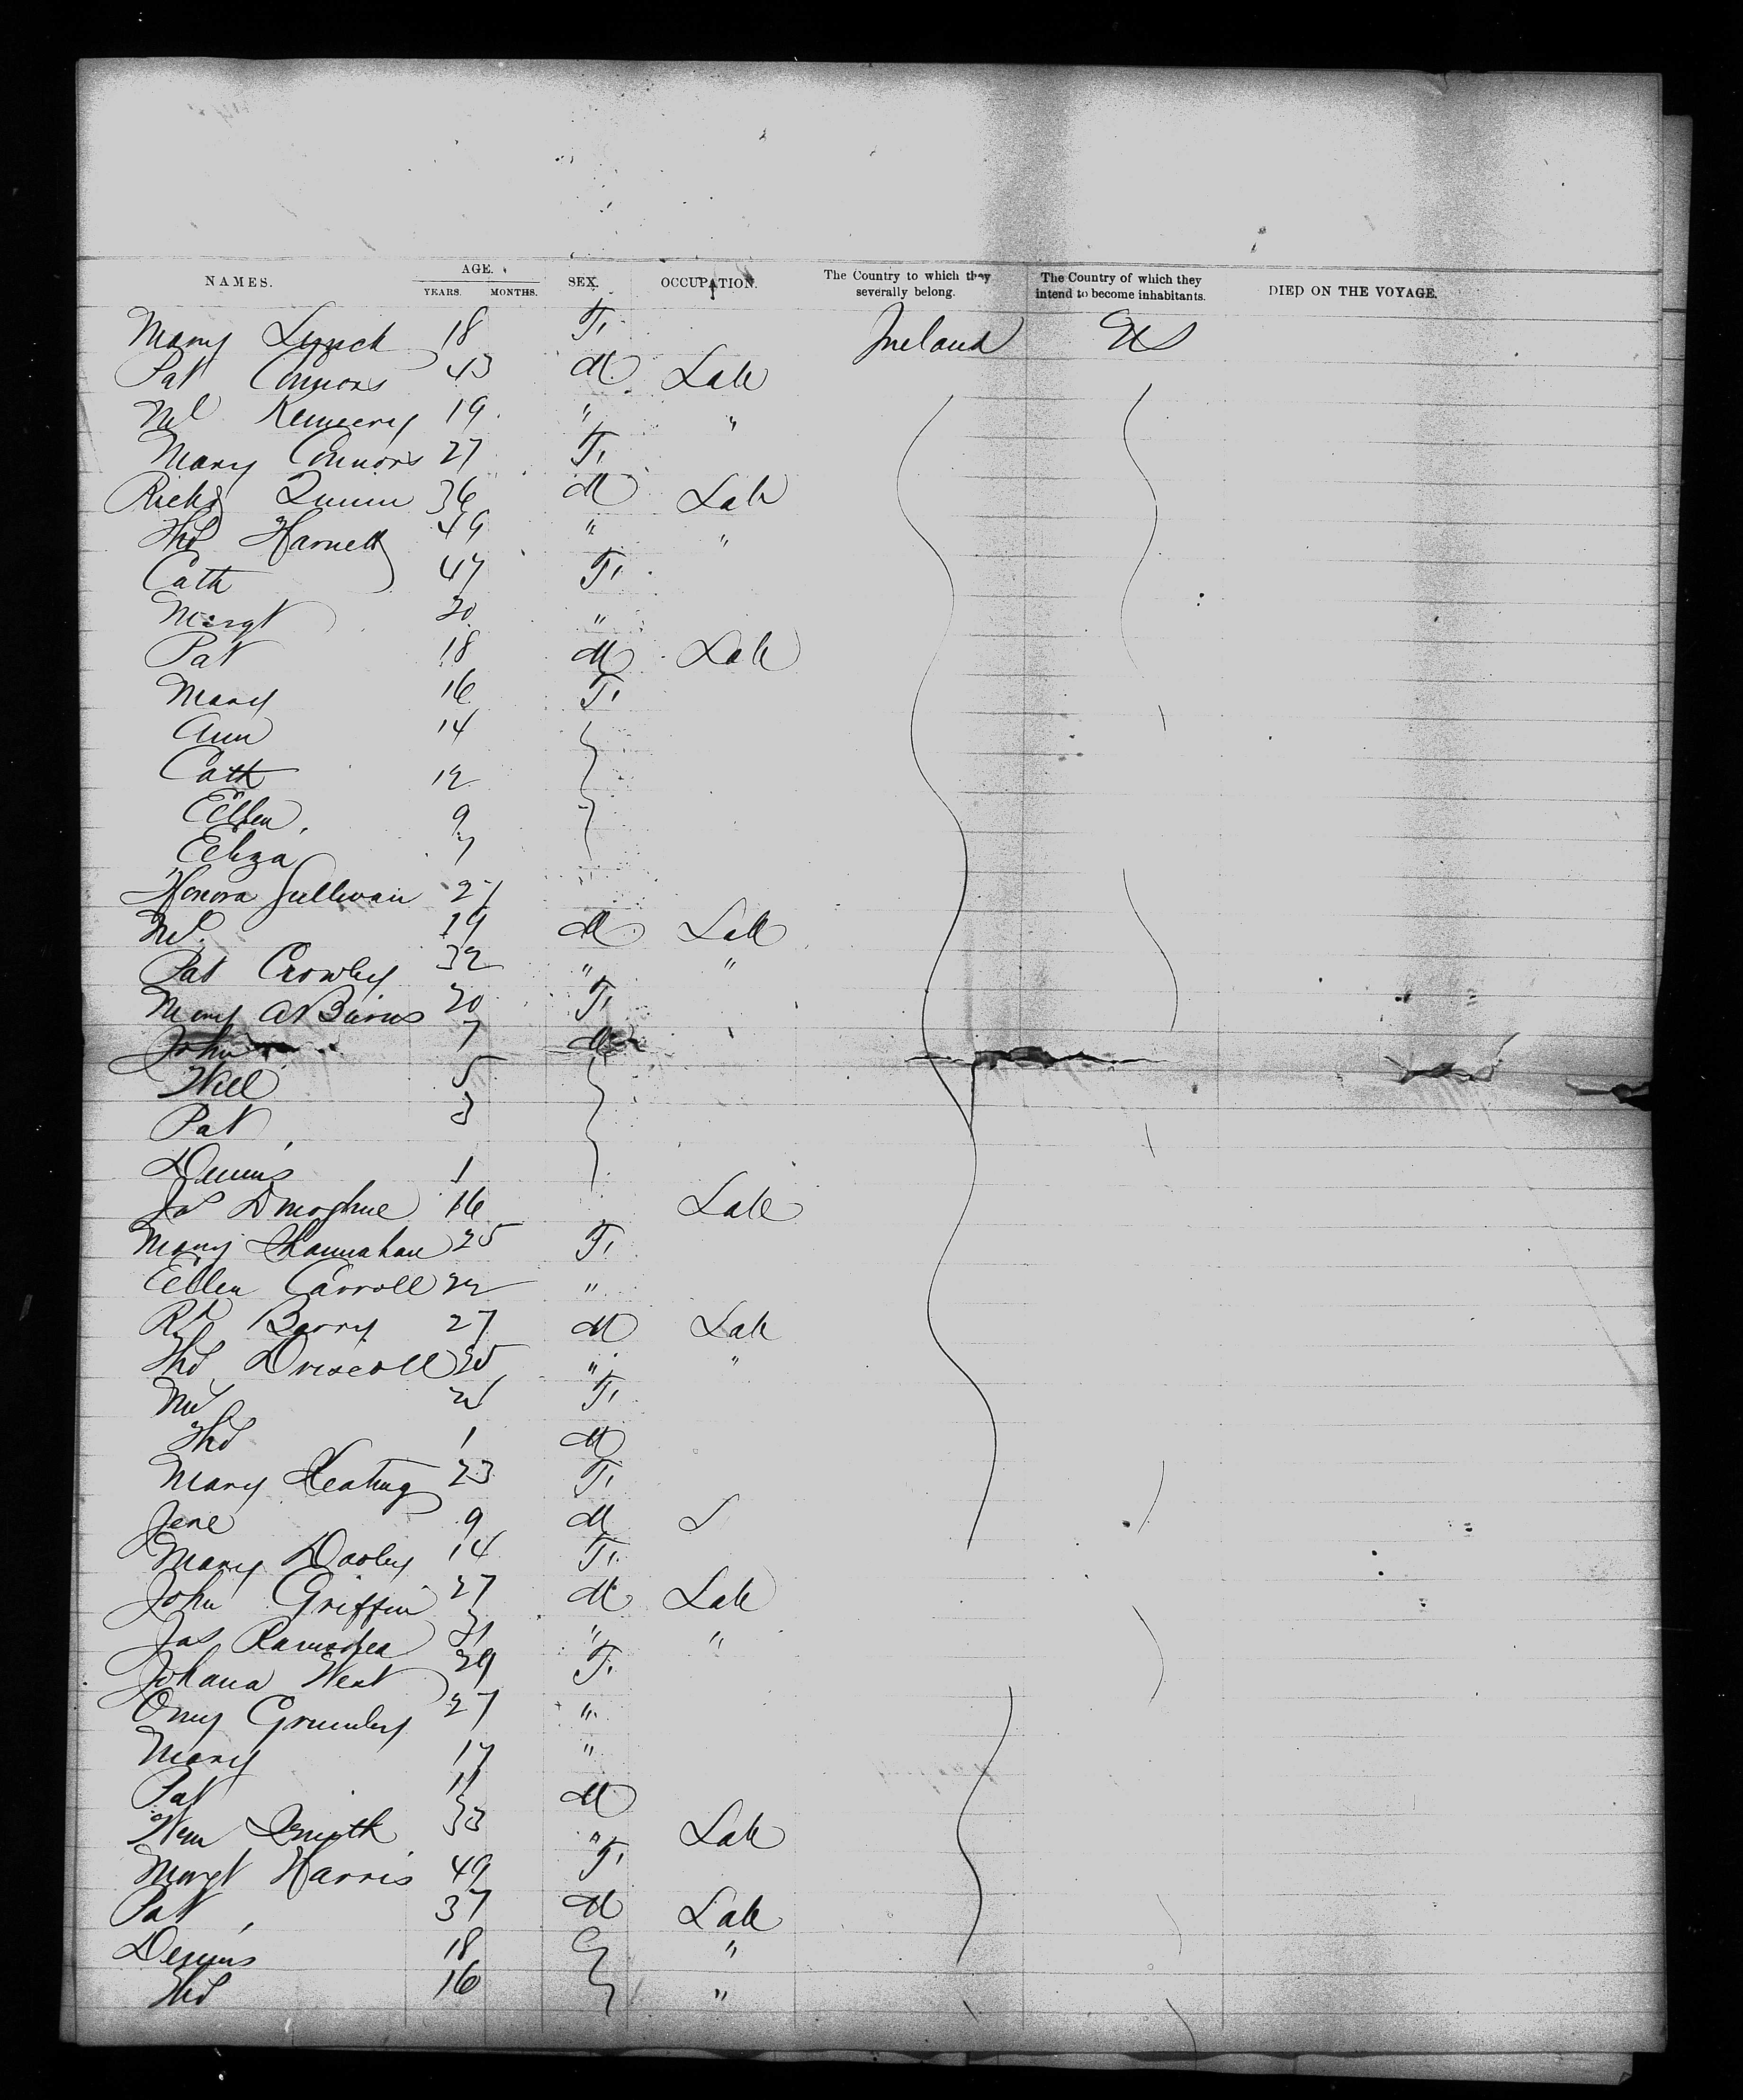 NAMES. AGE. YEARS. MONTHS. SEX. OCCUPATION. The Country to which they severally belong. The Country of which they intend to become inhabitants. DIED ON THE VOYAGE.
Mary Lynch 18 F. Ireland US
Pat Connors 43 M Lab
Ml 19 " "
Mary Connors 27 F.
Richd Quinn 36 M Lab
Thos Harnett 49 " "
Cath 47 F.
Margt 20 "
Pat 18 M Lab
Mary 16 F.
Ann 14
Cath 12
Ellen 9
Eliza 7
Honora Sullivan 27
Ml 19 M Lab
Pat Crowley 32 " "
Mary A Burns 30 F.
John 7 M
Will 5
Pat 3
Dennis 1
Jas Donoghue 16 Lab
Mary Shannahan 25 F.
Ellen Carroll 22 "
Rd Barry 27 M Lab
Thos Driscoll 25 " "
F.
Thos 1 M
Mary Keating 23 F.
Jane 9 M L
Mary Dooley 14 F.
John Griffin 27 M Lab
Jas " "
Johana West 29 F.
27 "
Mary 17 "
Pat 11 M
Wm Smyth 33 " Lab
Margt Harris 49 F.
Pat 37 M Lab
Dennis 18 "
Thos 16 "